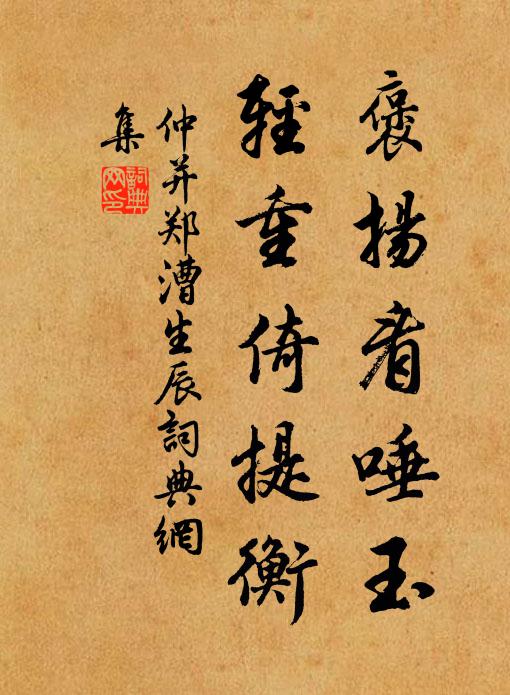 褒揚看唾玉
輕重倚提衡
仲并郑漕生辰詞典網
集
詞典網印